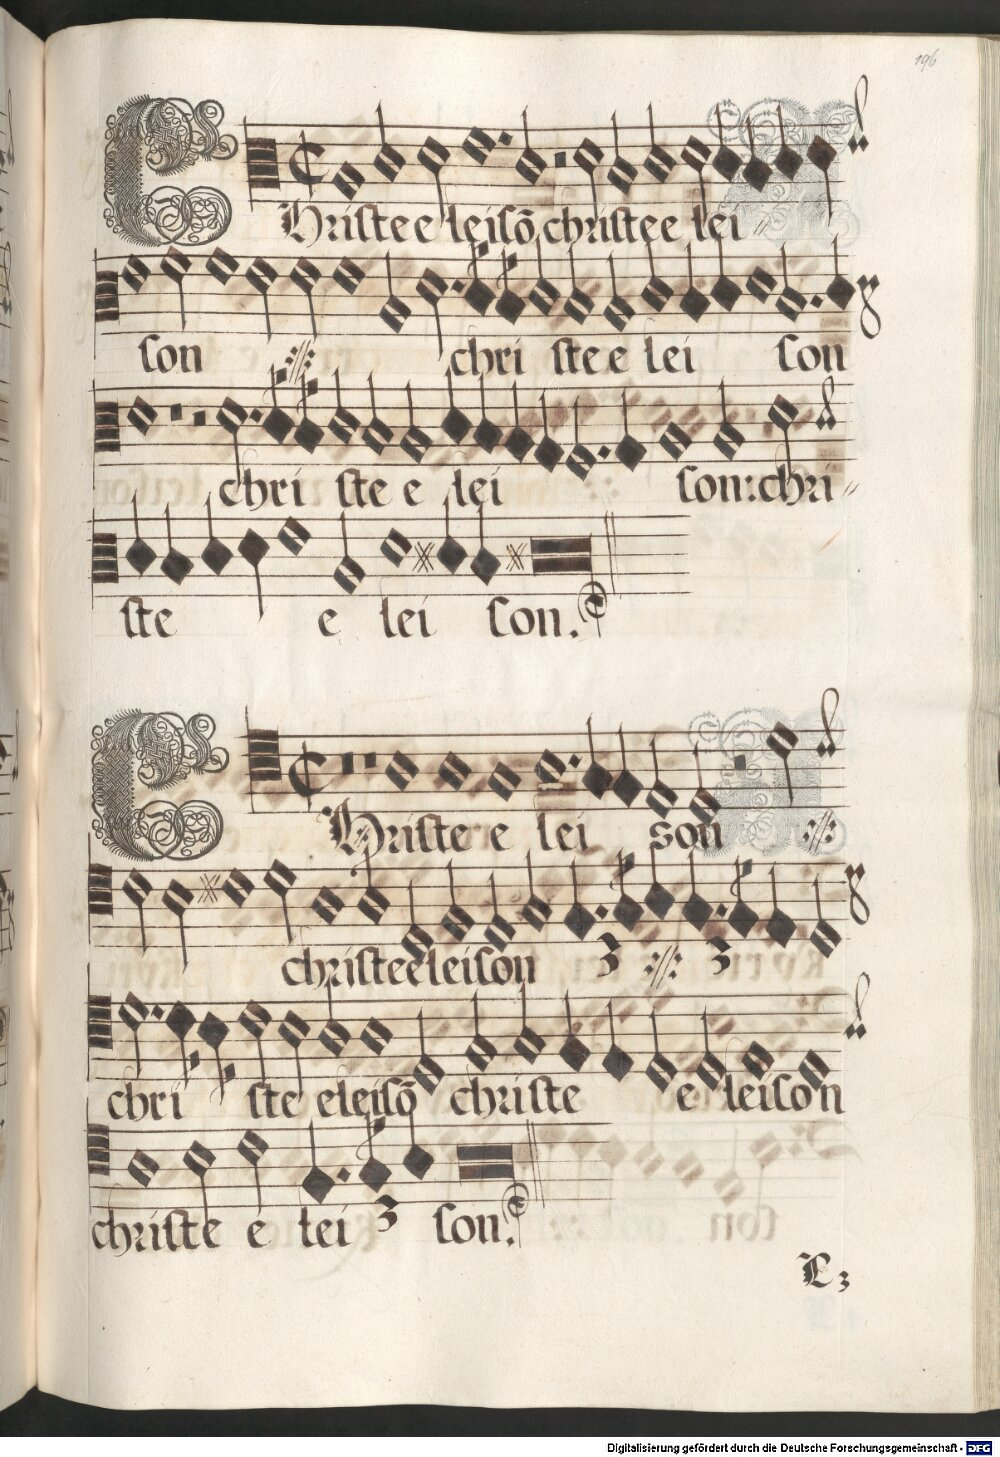 196
CHriste eleisõ christe e lei〃
son chri ste e lei son
chri ste e lei son: chri〃
ste e lei son.
CHriste e lei son
christe eleison 3 3
chri ste eleisõ christe e leison
christe e lei 3 son.
Digitalisierung gefördert durch die Deutsche Forschungsgemeinschaft - DFG